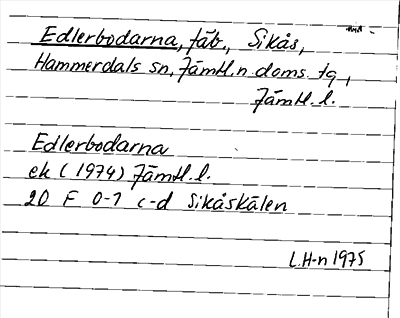 Edlerbodarna, fäb., Sikås,
Hammerdals sn, Jämtl. n. doms. tg,
Jämtl. l.
Edlerbodarna
ek (1974) Jämtl. l.
20 F 0-1 c-d Sikåskälen
L.H-n 1975